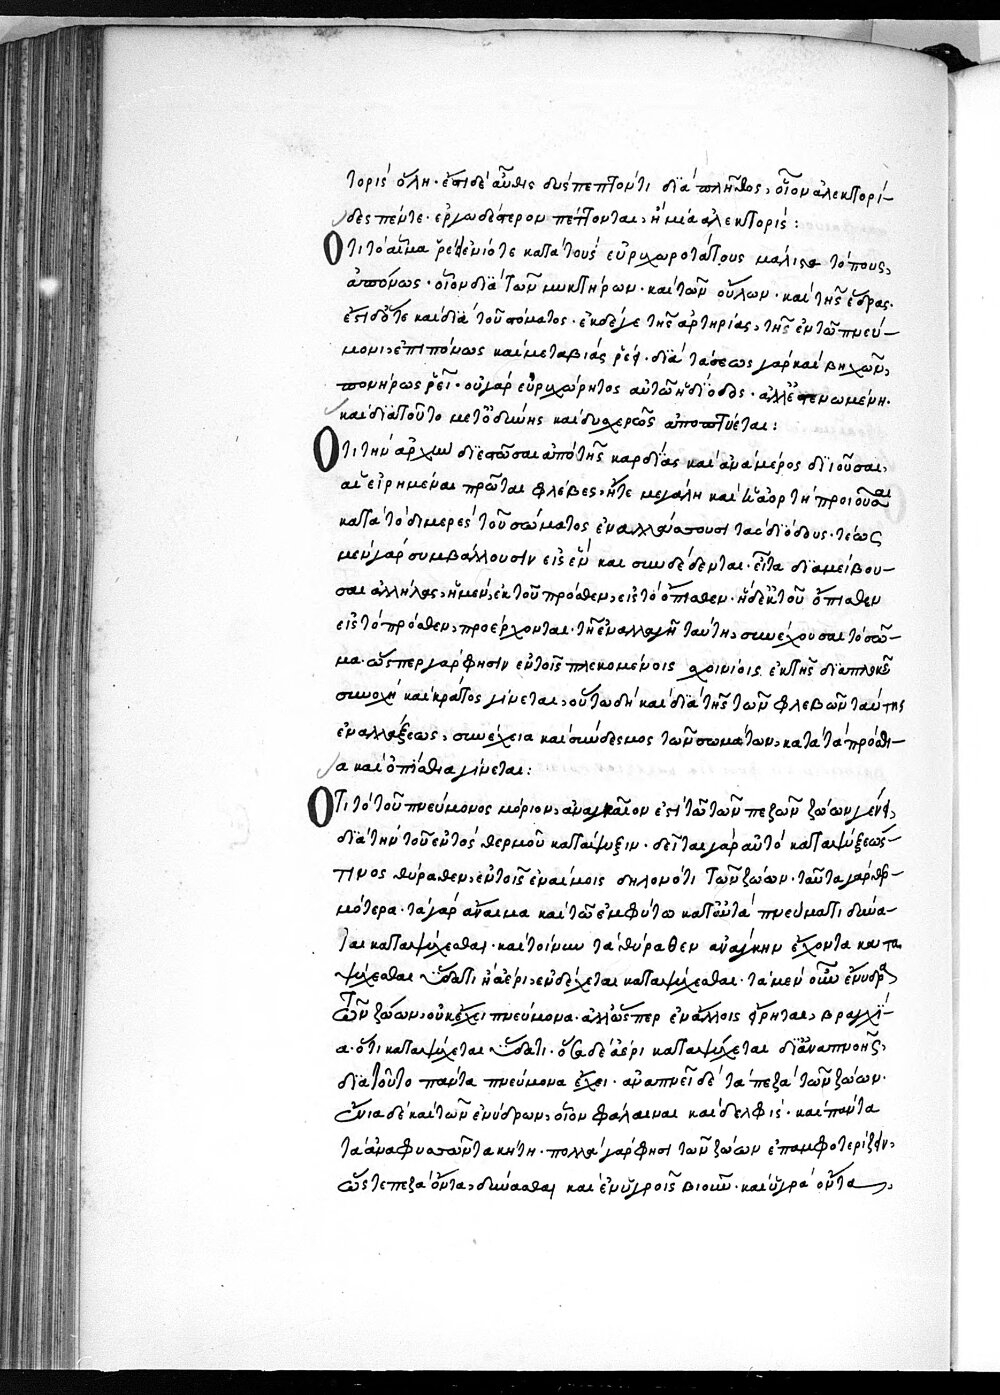 τορὶς ὅλη· ἔστι δὲ αὖθις δυσπεπτον τι διὰ πλῆθος, οἷον ἀλεκτορί-
δες πέντε· ἐργωδέστερον πέττονται, ἢ μία ἀλεκτορίς:
Ὅτι τὸ αἷμα ῥεῖ ἐνίοτε κατὰ τοὺς εὐρυχωροτάτους μάλιστα τόπους,
ἀπόνως· οἷον διὰ τῶν μυκτήρων· καὶ τῶν οὔλων· καὶ τῆς ἕδρας·
ἔστι δ' ὅτε καὶ διὰ τοῦ στόματος· ἐκ δέ γε τῆς ἀρτηρίας, τῆς ἐν τῷ πνεύ-
μονι, ἐπιπόνως καὶ μετὰ βίας ῥεῖ· διὰ τάσεως γὰρ καὶ βηχῶν,
πονήρως ῥεῖ· οὐ γὰρ εὐρυχώρητος αὐτῶ ἡ δίοδος· ἀλλ' ἐστενωμένη·
καὶ διὰ τοῦτο μετ' ὀδύνης καὶ δυσχερῶς ἀποπτύεται:
Ὅτι τὴν ἀρχὴν διεστῶσαι ἀπὸ τῆς καρδίας καὶ ἀνὰ μέρος διιοῦσαι,
αἱ εἰρημέναι πρῶται φλέβες, ἥτε μεγάλη καὶ ἡ ἀορτὴ προιοῦσαι
κατὰ τὸ διμερὲς τοῦ σώματος ἐναλλάττουσι τὰς διόδους· τέως
μὲν γὰρ συμβάλλουσιν εἰς ἓν καὶ συνδέδενται· εἶτα διαμείβου-
σαι ἀλλήλας, ἡ μὲν, ἐκ τοῦ πρόσθεν, εἰς τὸ ὄπισθεν· ἡ δὲ ἐκ τοῦ ὄπισθεν
εἰς τὸ πρόσθεν, προέρχονται· τῇ ἐναλλαγῇ ταύτῃ, συνέχουσαι τὸ σῶ-
μα· ὥσπερ γάρ φησιν ἐν τοῖς πλεκομένοις σχοινίοις ἐκ τῆς διαπλοκῆς
συνοχὴ καὶ κράτος γίνεται, οὕτω δὴ καὶ διὰ τῆς τῶν φλεβῶν ταύτης
ἐναλλάξεως, συνέχεια καὶ σύνδεσμος τῶν σωμάτων, κατὰ τὰ πρόσθι-
α καὶ ὀπίσθια γίνεται:
Ὅτι τὸ τοῦ πνεύμονος μόριον, ἀναγκαῖον ἐστὶ τῶ τῶν πεζῶν ζώων γένει,
διὰ τὴν τοῦ ἐντὸς θερμοῦ κατάψυξιν· δεῖται γὰρ αὐτὸ καταψύξεώς
τινος θύραθεν, ἐν τοῖς ἐναίμοις δηλονότι τῶν ζώων· ταῦτα γὰρ θερ-
μότερα· τὰ γὰρ ἄναιμα καὶ τῶ ἐμφύτω κατ' αὐτὰ πνεύματι δύνα-
ται καταψύχεσθαι· καὶ τοίνυν τὰ θύραθεν ἀνάγκην ἔχοντα κατα-
ψύχεσθαι ἢ ὕδατι ἢ ἀέρι, ἐνδέχεται καταψύχεσθαι· τὰ μὲν οὖν ἔνυδρα
τῶν ζώων, οὐκ ἔχει πνεύμονα· ἀλλ' ὥσπερ ἐν ἄλλοις εἴρηται, βράγχι-
α· ὅτι καταψύχεται ὕδατι· ὅσα δὲ ἀέρι καταψύχεται δι' ἀναπνοῆς,
διὰ τοῦτο πάντα πνεύμονα ἔχει· ἀναπνεῖ δὲ τὰ πεζὰ τῶν ζώων·
ἔνια δὲ καὶ τῶν ἐνύδρων, οἷον φάλαιναι καὶ δελφίς· καὶ πάντα
τὰ ἀναφυσῶντα κήτη· πολλὰ γάρ φησι τῶν ζώων ἐπαμφοτερίζειν,
ὥς τε πεζὰ ὄντα, δύνασθαι καὶ ἐν ὑγροῖς βιοῦν· καὶ ὑγρὰ ὄντα,